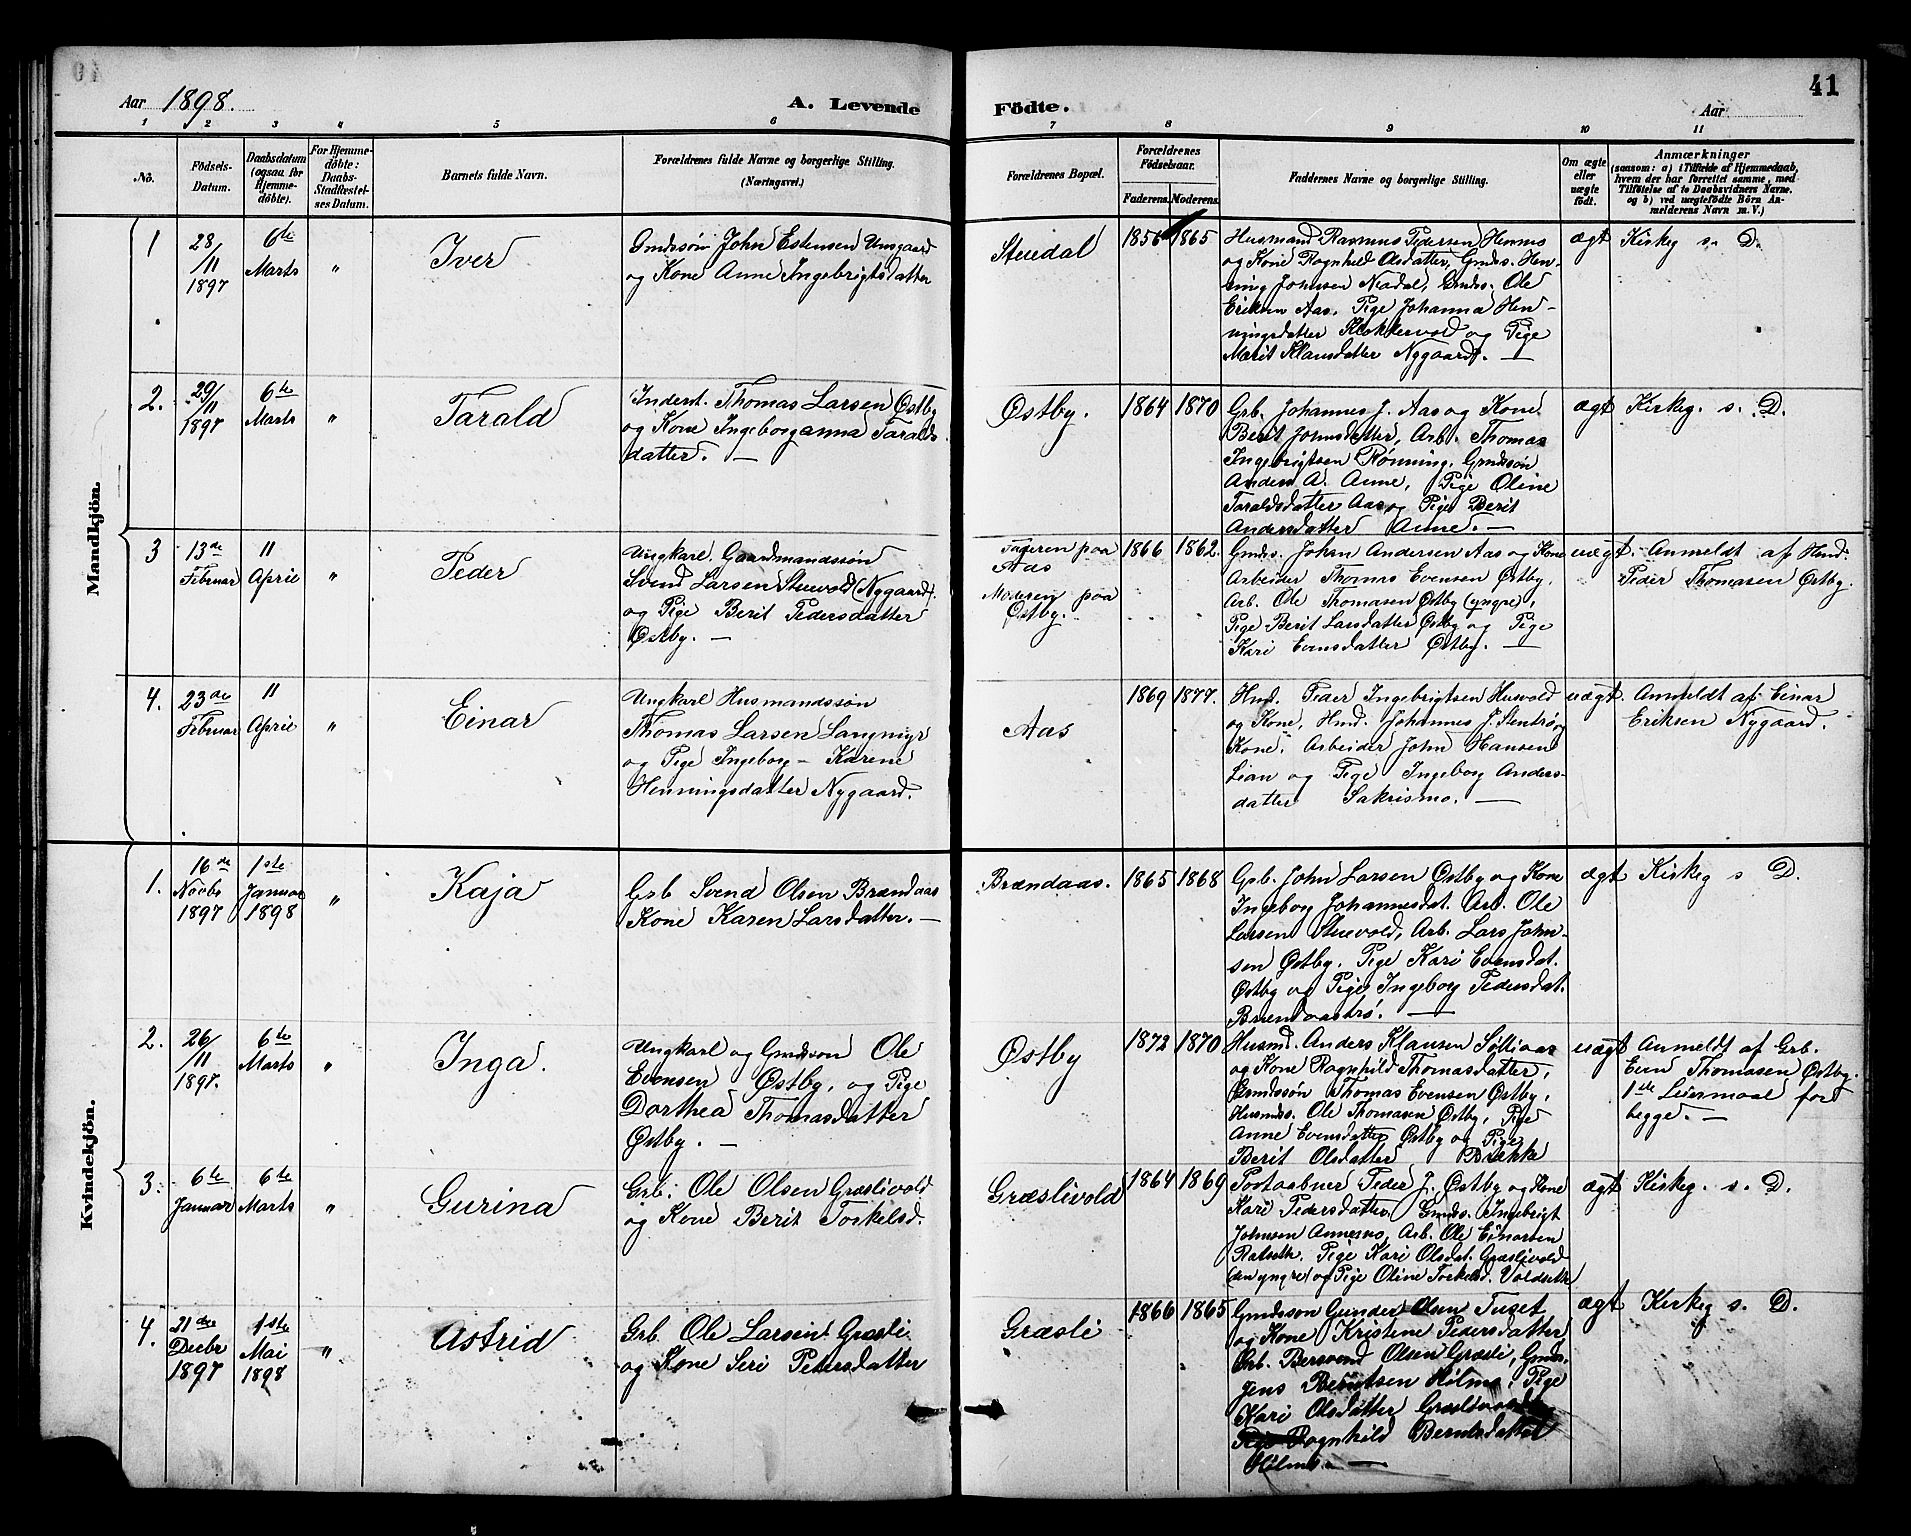 Aar 1898. A. Levende Födte. Aar 41
1 2 3 4 5 6 7 8 9 10 11
No.
Födsels-
Datum.
Daabsdatum
(ogsaa for
Hjemme-
döbte).
For Hjemme-
döbte:
Daabs-
Stadfæstel-
ses Datum.
Barnets fulde Navn.
Forældrenes fulde Navne og borgerlige Stilling.
(Næringsvei.)
Forældrenes Bopæl.
Forældrenes
Födselsaar.
Faderens. Moderens.
Faddernes Navne og borgerlige Stilling.
Om ægte
eller
uægte
født.
Anmærkninger
(saasom: a) i Tilfælde af Hjemmedaab,
hvem der har forrettet samme, med
Tilføtelse af to Daabsvidners Navne.
og b) ved uægtefödte Börn An-
melderens Navn m.V.)
Mandkjön.
1
28
/11
1897
6te
Marts
"
Iver
Gmdssön John Estensen Unsgaard
og Kone Anne Ingebrigtsdatter
Stuedal
1856 1865
Husmand Rasmus Pedersen Hemmo
og Kone Ragnhild Olsdatter, Gmds. Hen-
ning Johnsen Nordal, Gmds. Ole
Eriksen Aas. Pige Johanna Hen-
ningsdatter Klokkervold og Pige
Marit Klausdatter Nygaard. —
ægt
Kirkeg s. D.
2.
29/
11
1897
6te
Marts
"
Tarald
Inderst. Thomas Larsen Østby
og Kone Ingeborganna Taralds-
datter. —
Østby.
1864 1870
Grb. Johannes J. Aas og Kone
Berit Johnsdatter, Arb. Thomas
Ingebrigtsen Rønning. Gmdssøn
Anders A. Aunne, Pige Oline
Taraldsdatter Aas og Pige Berit
Andersdatter Aunne. —
ægt
Kirkeg. s. D.
3
13de
Februar
11
April
"
Peder
Ungkarl. Gaardmandssön
Svend Larsen Stuevold (Nygaard).
og Pige Berit Pedersdatter
Østby. —
Faderen paa
Aas
Moderen paa
Østby.
1866 1862.
Gmds. Johan Andersen Aas og Kone
Arbeider Thomas Evensen Østby,
Arb. Ole Thomasen Østby (yngre),
Pige Berit Larsdatter Østby og Pige
Kari Evensdatter Østby. —
uægt.
Anmeldt af Hmd.
Peder Thomasen Østby.
4.
23de
Februar
11
April
"
Einar
Ungkarl Husmandssön
Thomas Larsen Langmyr
og Pige Ingeborg - Karene
Henningsdatter Nygaard.
Aas
1869 1877.
Hmd. Peder Ingebrigtsen Husvold
og Kone, Hmd. Johannes J. Stentrø og
Kone. Arbeider John Hansen
Lian og Pige Ingeborg Anders-
datter Sakrismo. —
uægt.
Anmeldt af Einar
Eriksen Nygaard.
Kvindekjön.
1.
16de
Novbr
1897
1ste
Januar
1898
"
Kaja
Grb Svend Olsen Brændaas
Kone Karen Larsdatter. —
Brændaas.
1865 1868
Grb. John Larsen Østby og Kone
Ingeborg Johannesdat. Arb. Ole
Larsen Stuevold, Arb. Lars John-
sen Østby. Pige Kari Evensdat.
Østby og Pige Ingeborg Pedersdat.
Brændaastrø. —
ægt
Kirkeg s D.
2.
26/
11
1897.
6te
Marts
"
Inga.
Ungkarl og Gmdssøn Ole
Evensen Østby, og Pige
Dorthea Thomasdatter
Østby. —
Østby
1872 1870
Husmd. Anders Klausen Solliaas
og Kone Ragnhild Thomasdatter,
Gmdssøn Thomas Evensen Østby,
Husmds. Ole Thomasen Østby, Pige
Anne Evensdatter Østby og Pige
Berit Olsdatter Brække
uægt
Anmeldt af Grb.
Even Thomasen Østby.
1ste Leiermaal for
begge. —
3.
6te
Januar
6te
Marts
"
Gurina
Grb. Ole Olsen Græslivold
og Kone Berit Torkelsd.
Græslivold
1864 1869
Postaabner Peder J. Østby og Kone
Kari Pedersdatter. Gmds. Ingebrigt
Johnsen Aunesmo, Arb. Ole Einarsen
Rotseth. Pige Kari Olsdat. Græslivold
(den yngre) og Pige Oline Torkelsd. Voldseth
ægt
Kirkeg. s. D.
4.
21de
Decbr
1897
1ste
Mai
1898
"
Astrid
Grb Ole Larsen Græsli
og Kone Seri Petersdatter
Græsli
1866 1865
Gmdssøn Gunder Olsen Tuset
og Kone Kristine Pedersdatter
Grb. Bersvend Olsen Græsli, Gmds.
Jens Berntsen Hilmo, Pige
Kari Olsdatter Græslivold
Pige Ragnhild Berntsdatter
Hilmo. —
ægt
Kirkeg s. D.